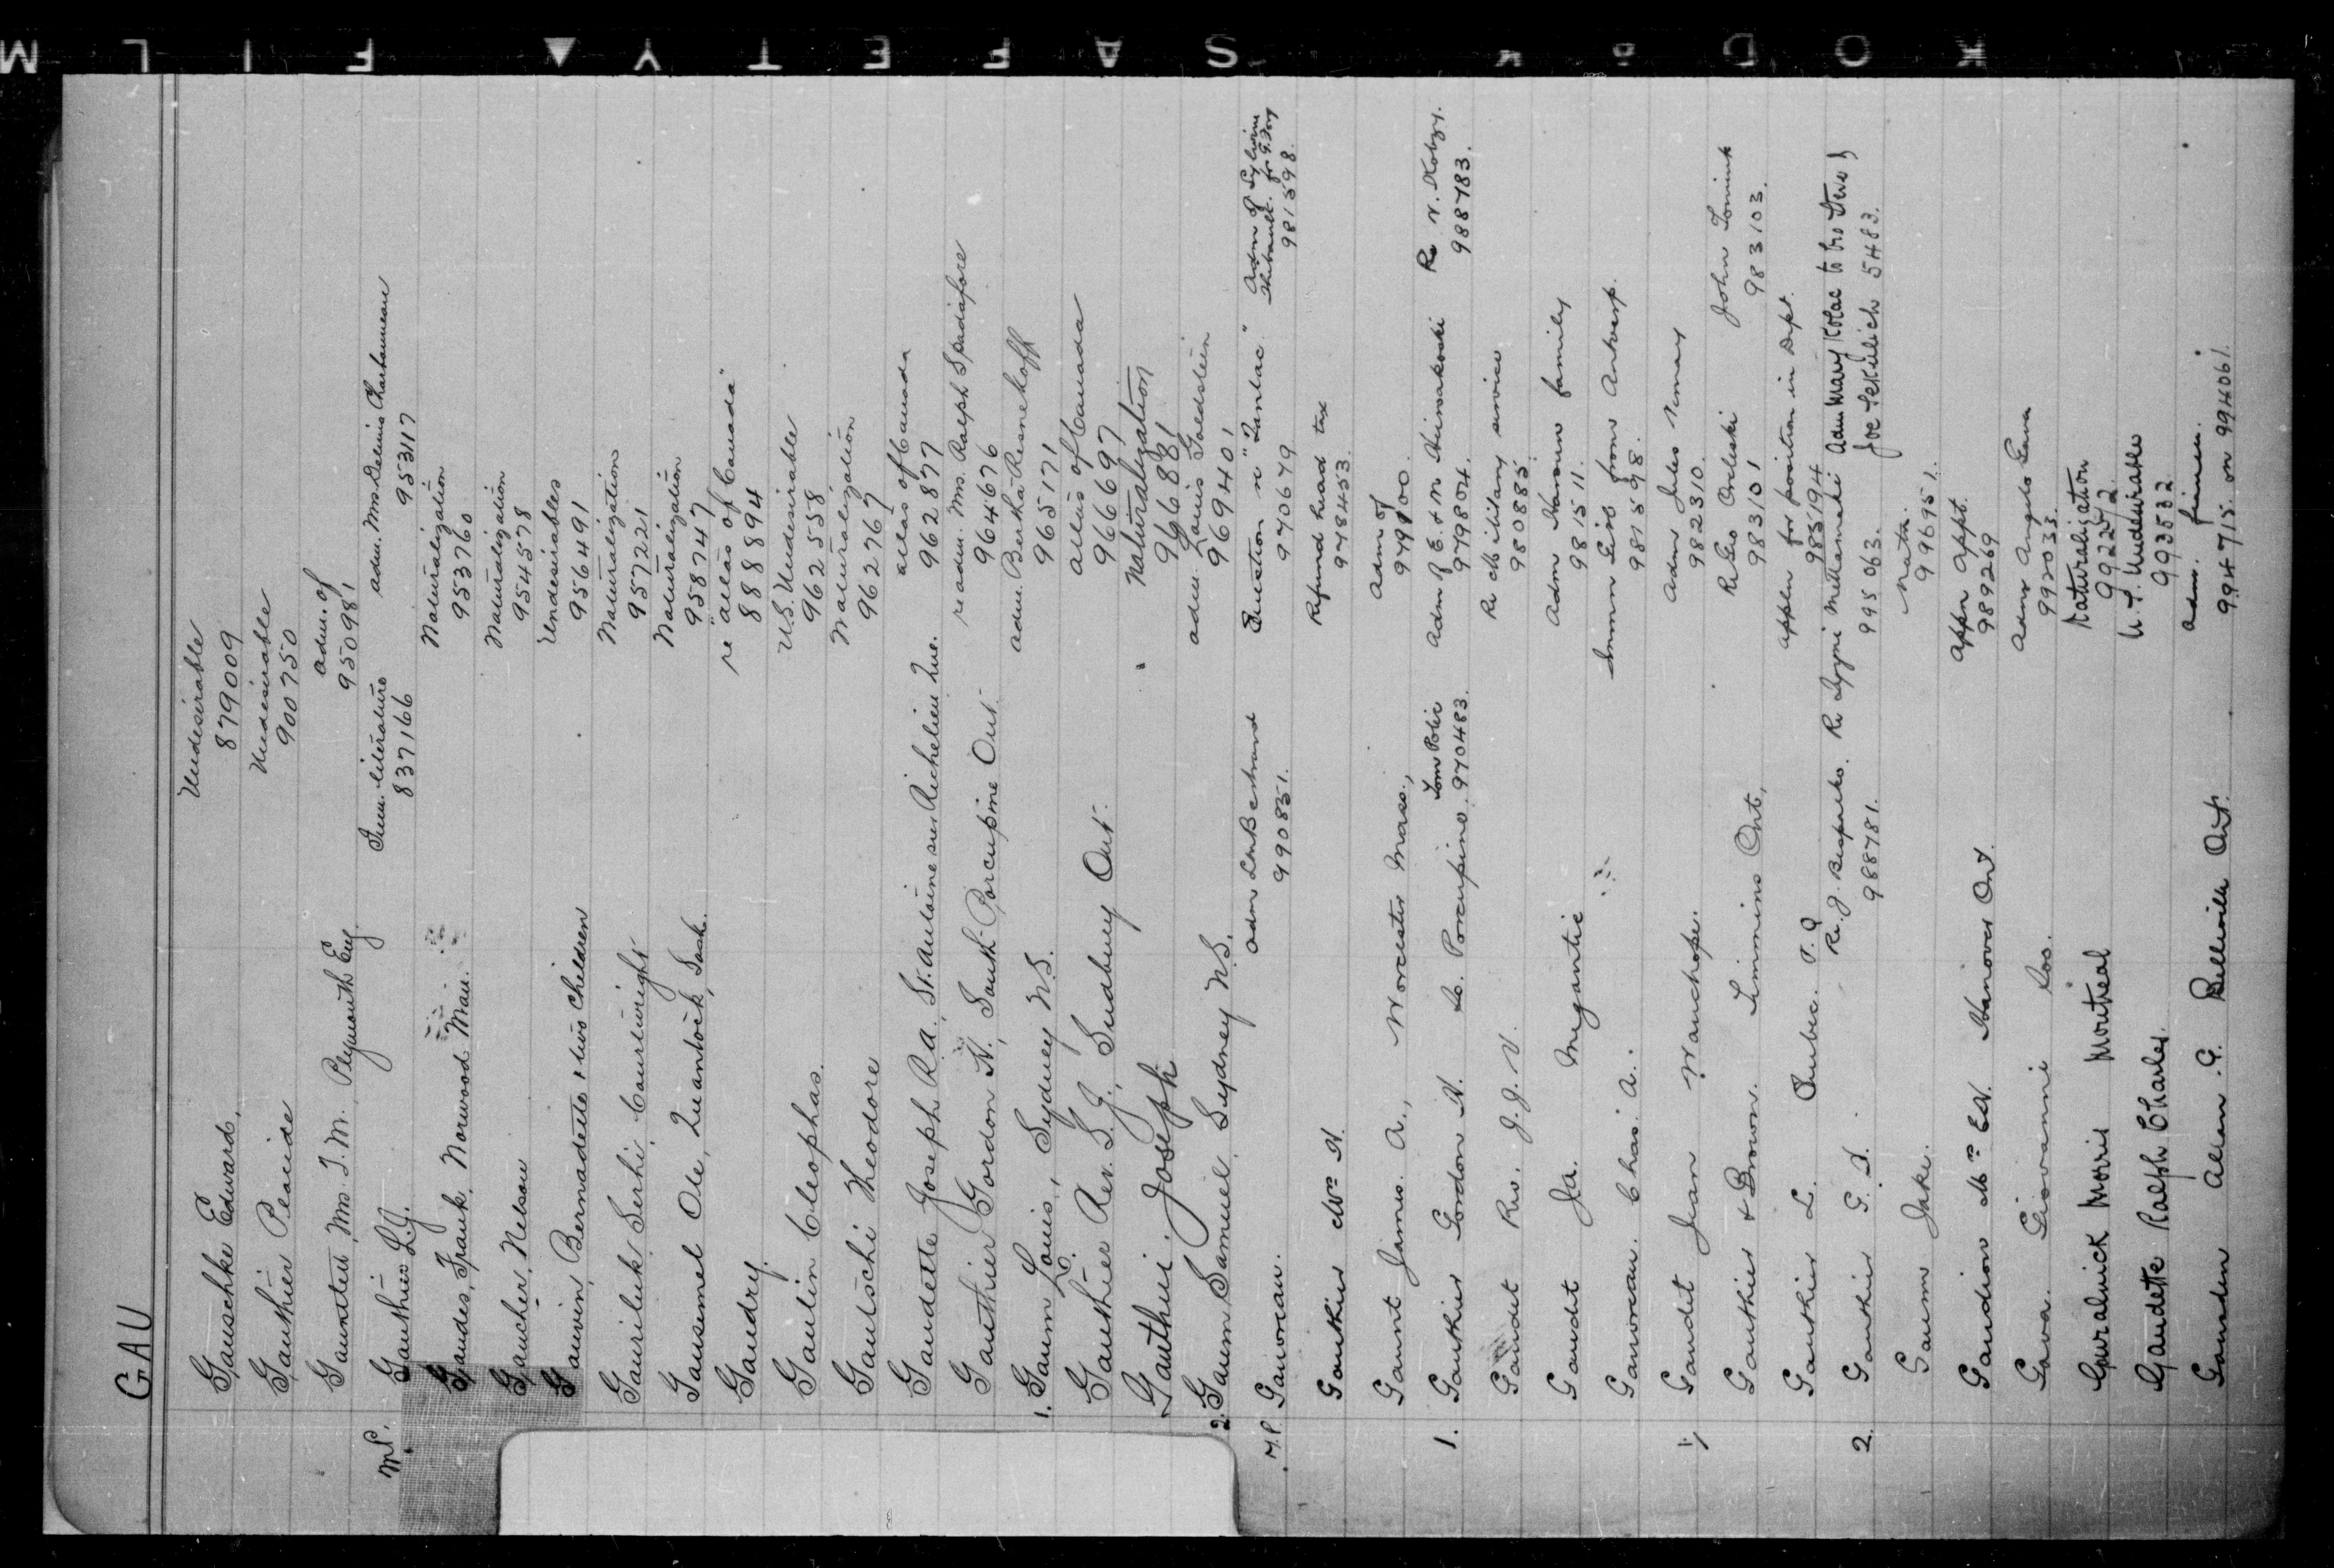 SAFETY ▲ FILM
KODAK
GAU
Gauschke Edward, Undesirable
879009
Gauthier Placide Undesirable
900750
Gauntlett, Mrs. J. M. Plymouth Eng. adm. of
950981
M.P. Gauthier L.J. Imm. literature adm. Mrs. Delima Charbonneau
837166 953117
Gaudes, Frank, Norwood Man. Naturalization
953760
Gaucher, Nelson Naturalization
954578
Gauvin, Bernadette & two children Undesirables
956491
Gauriluk Serhi, Courtwright Naturalization
957221
Gausemel Ole, Quantock, Sask. Naturalization
958747
Gaudry. re "allas of Canada"
888894
Gaulin Cleophas. U.S. Undesirable
962558
Gautschi Theodore Naturalization
962767
Gaudette Joseph R.A., St. Antoine sur Richelieu Que. allas of Canada
962877
Gauthier Gordon H., South Porcupine Ont. re adm. Mrs. Ralph Spadafore
964676
1. Gaum Louis, Sydney N.S. adm. Bertha Resnekoff
965171
Gauthier Rev. L. J., Sudbury Ont. allas of Canada
966697
Gauthier. Joseph Naturalization
966881
2. Gaum Samuel, Sydney N.S. adm. Louis Goldstein
969401
M.P. Gauvreau. Adm Bertrand Question re "Tanlac" Adm of Sylvine Thibault. for
990851. 970679 981598.
Gauthier Mrs N. Refund head tax
978453.
Gaunt James A., Worcester Mass., Adm of
979100.
1. Gauthier Gordon H. So. Porcupine. Tom Polic Adm of E. & N. Re N. Kobzy.
970483. 979804. 988783.
Gaudet Rev. J. J. V. Re Military service
980885.
Gaudet Ja. Megantic Adm Harown family
981511.
Gauvreau. Chas. A. Immn Girl from Antwerp.
981598.
Gaudet Jean Wauchope. Adm Jules
982310.
Gauthier & Brown. Timmins Ont, Re Geo Orleski John Tominik
983101 983103.
Gauthier L. Quebec. P.Q. Appln for position in Dept.
985194
2. Gauthier G. D. Re. J. Adm Mary Kolac to bro Steve &
988781. 995063. Joe Sekulich 5483.
Gaum Jake. Natn.
996951.
Gaudion Mrs EN. Hanover Ont. Appn appt.
989269
Gava. Giovanni Soo. Adm Angelo Gava
992033.
Gauralnick Morris Montreal Naturalization
992272.
Gaudette Ralph Charles. U.S. Undesirable
993532
Gaunden Allan G. Belleville Ont. Adm.
994715. on 994061.